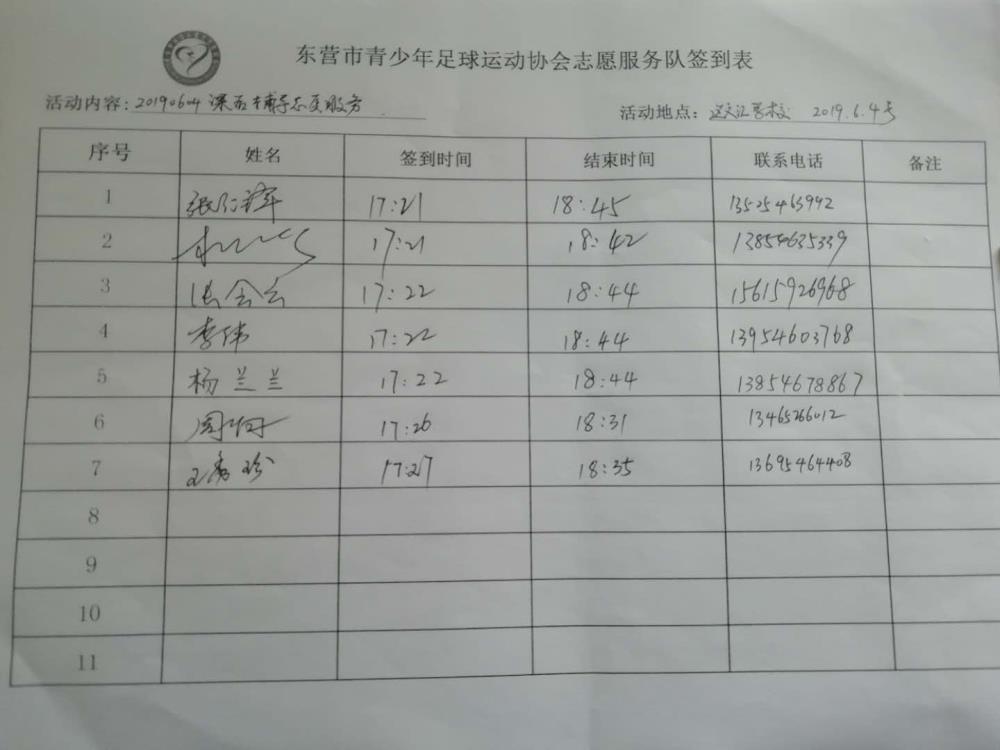 东营市青少年足球运动协会志愿服务队签到表
活动内容：20190604 课后辅导志愿服务
活动地点： 2019.6.4号
序号 姓名 签到时间 结束时间 联系电话 备注
1 17:21 18:45 13525463992
2 17:21 18:42 13854635339
3 17:22 18:44 15615926968
4 李伟 17:22 18:44 13954603768
5 杨兰兰 17:22 18:44 13854678867
6 17:26 18:31 13465266012
7 王秀珍 17:27 18:35 13695464408
8
9
10
11